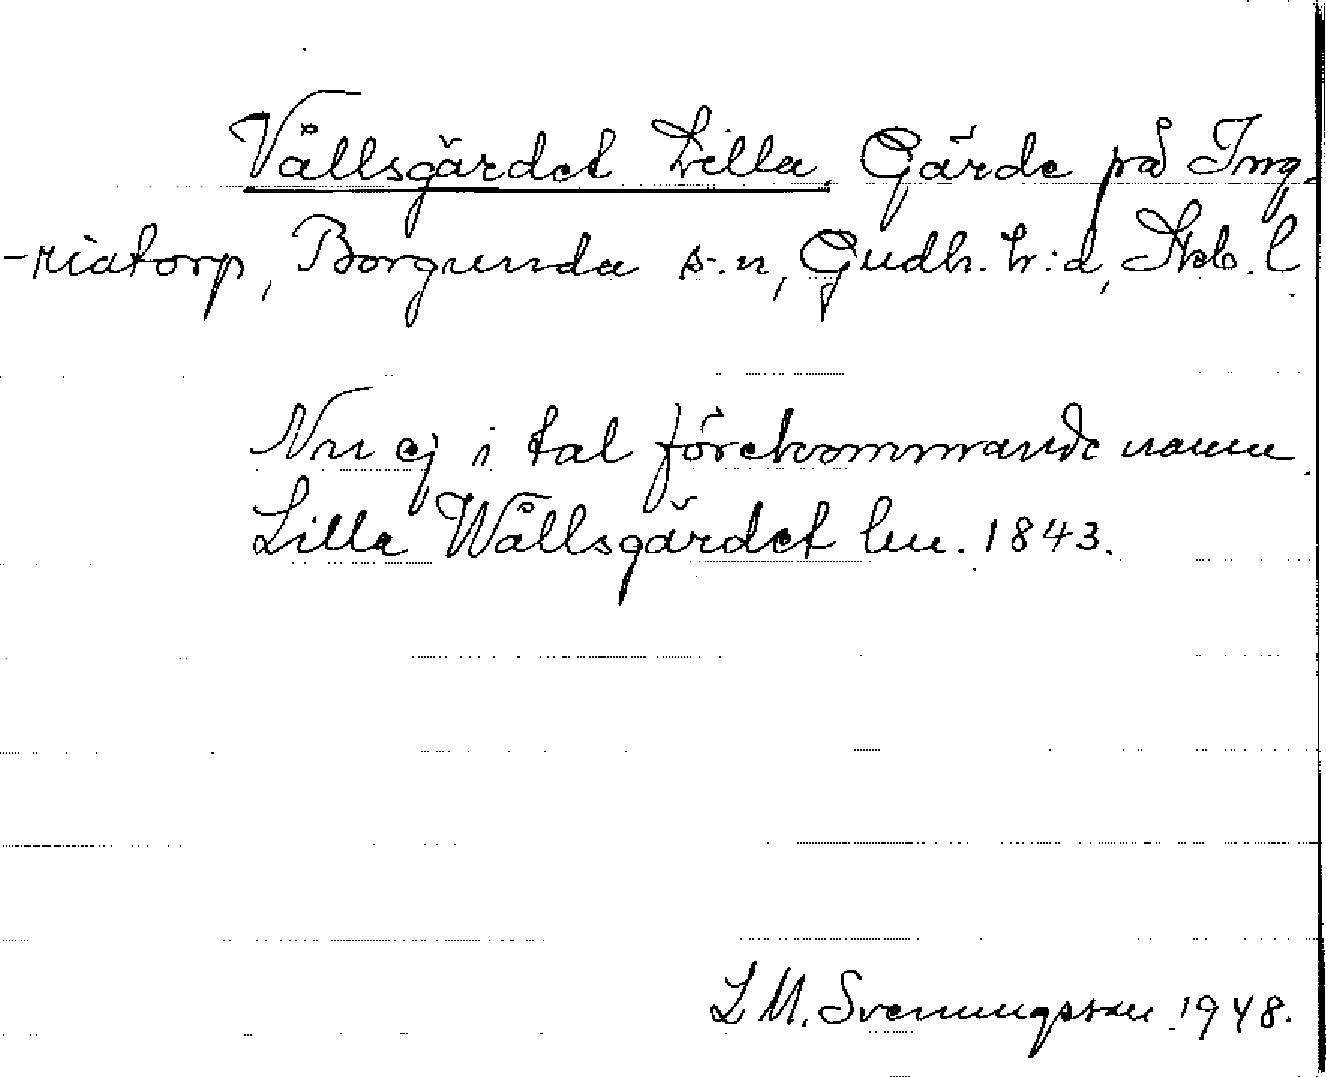 Vållsgärdet Lilla, Gärde på Ing-
-riatorp, Borgunda s.n, Gudh. h:d, Skb. l
Nu ej i tal förekommande namn.
Lilla Wållsgärdet lm. 1843.
L M. Svenungsson 1948.